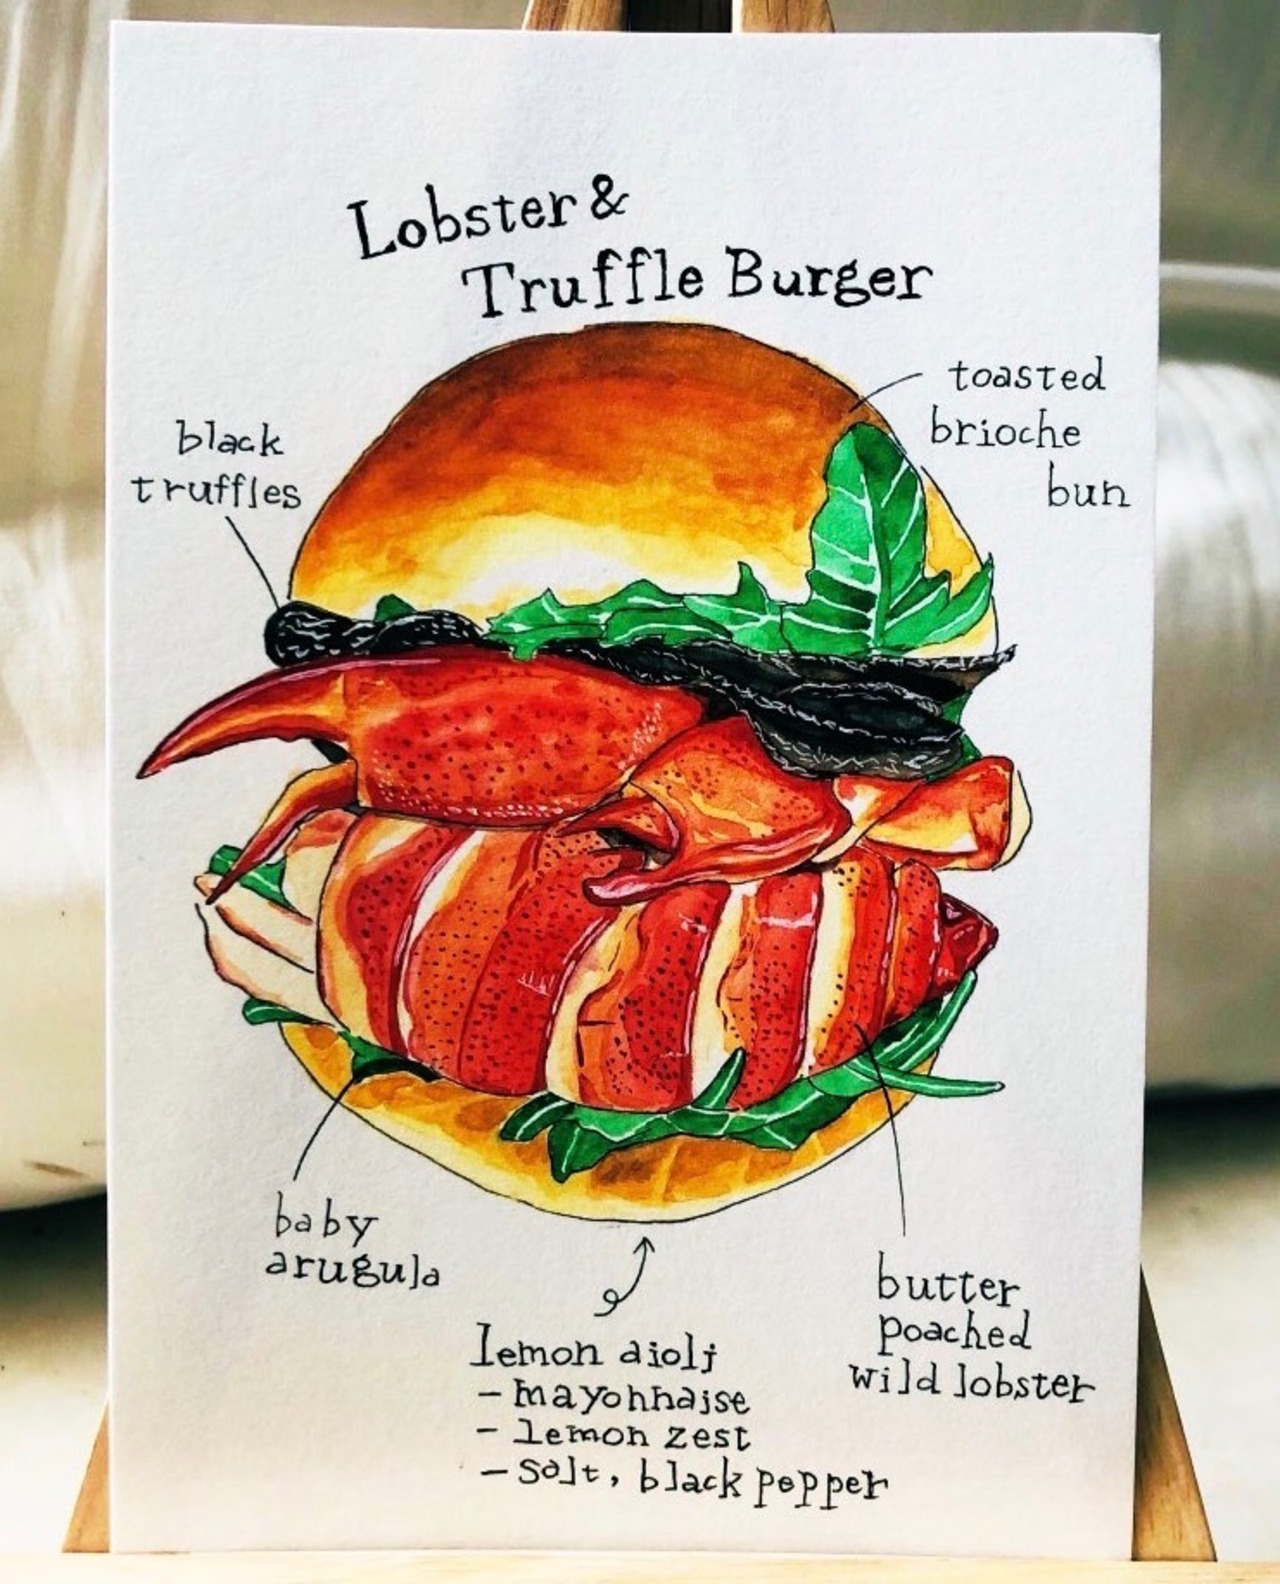 Lobster &
Truffle Burger
toasted
brioche
bun
black
truffles
baby
arugula
butter
poached
wild lobster
lemon aioli
- mayonnaise
- lemon zest
- salt, black pepper